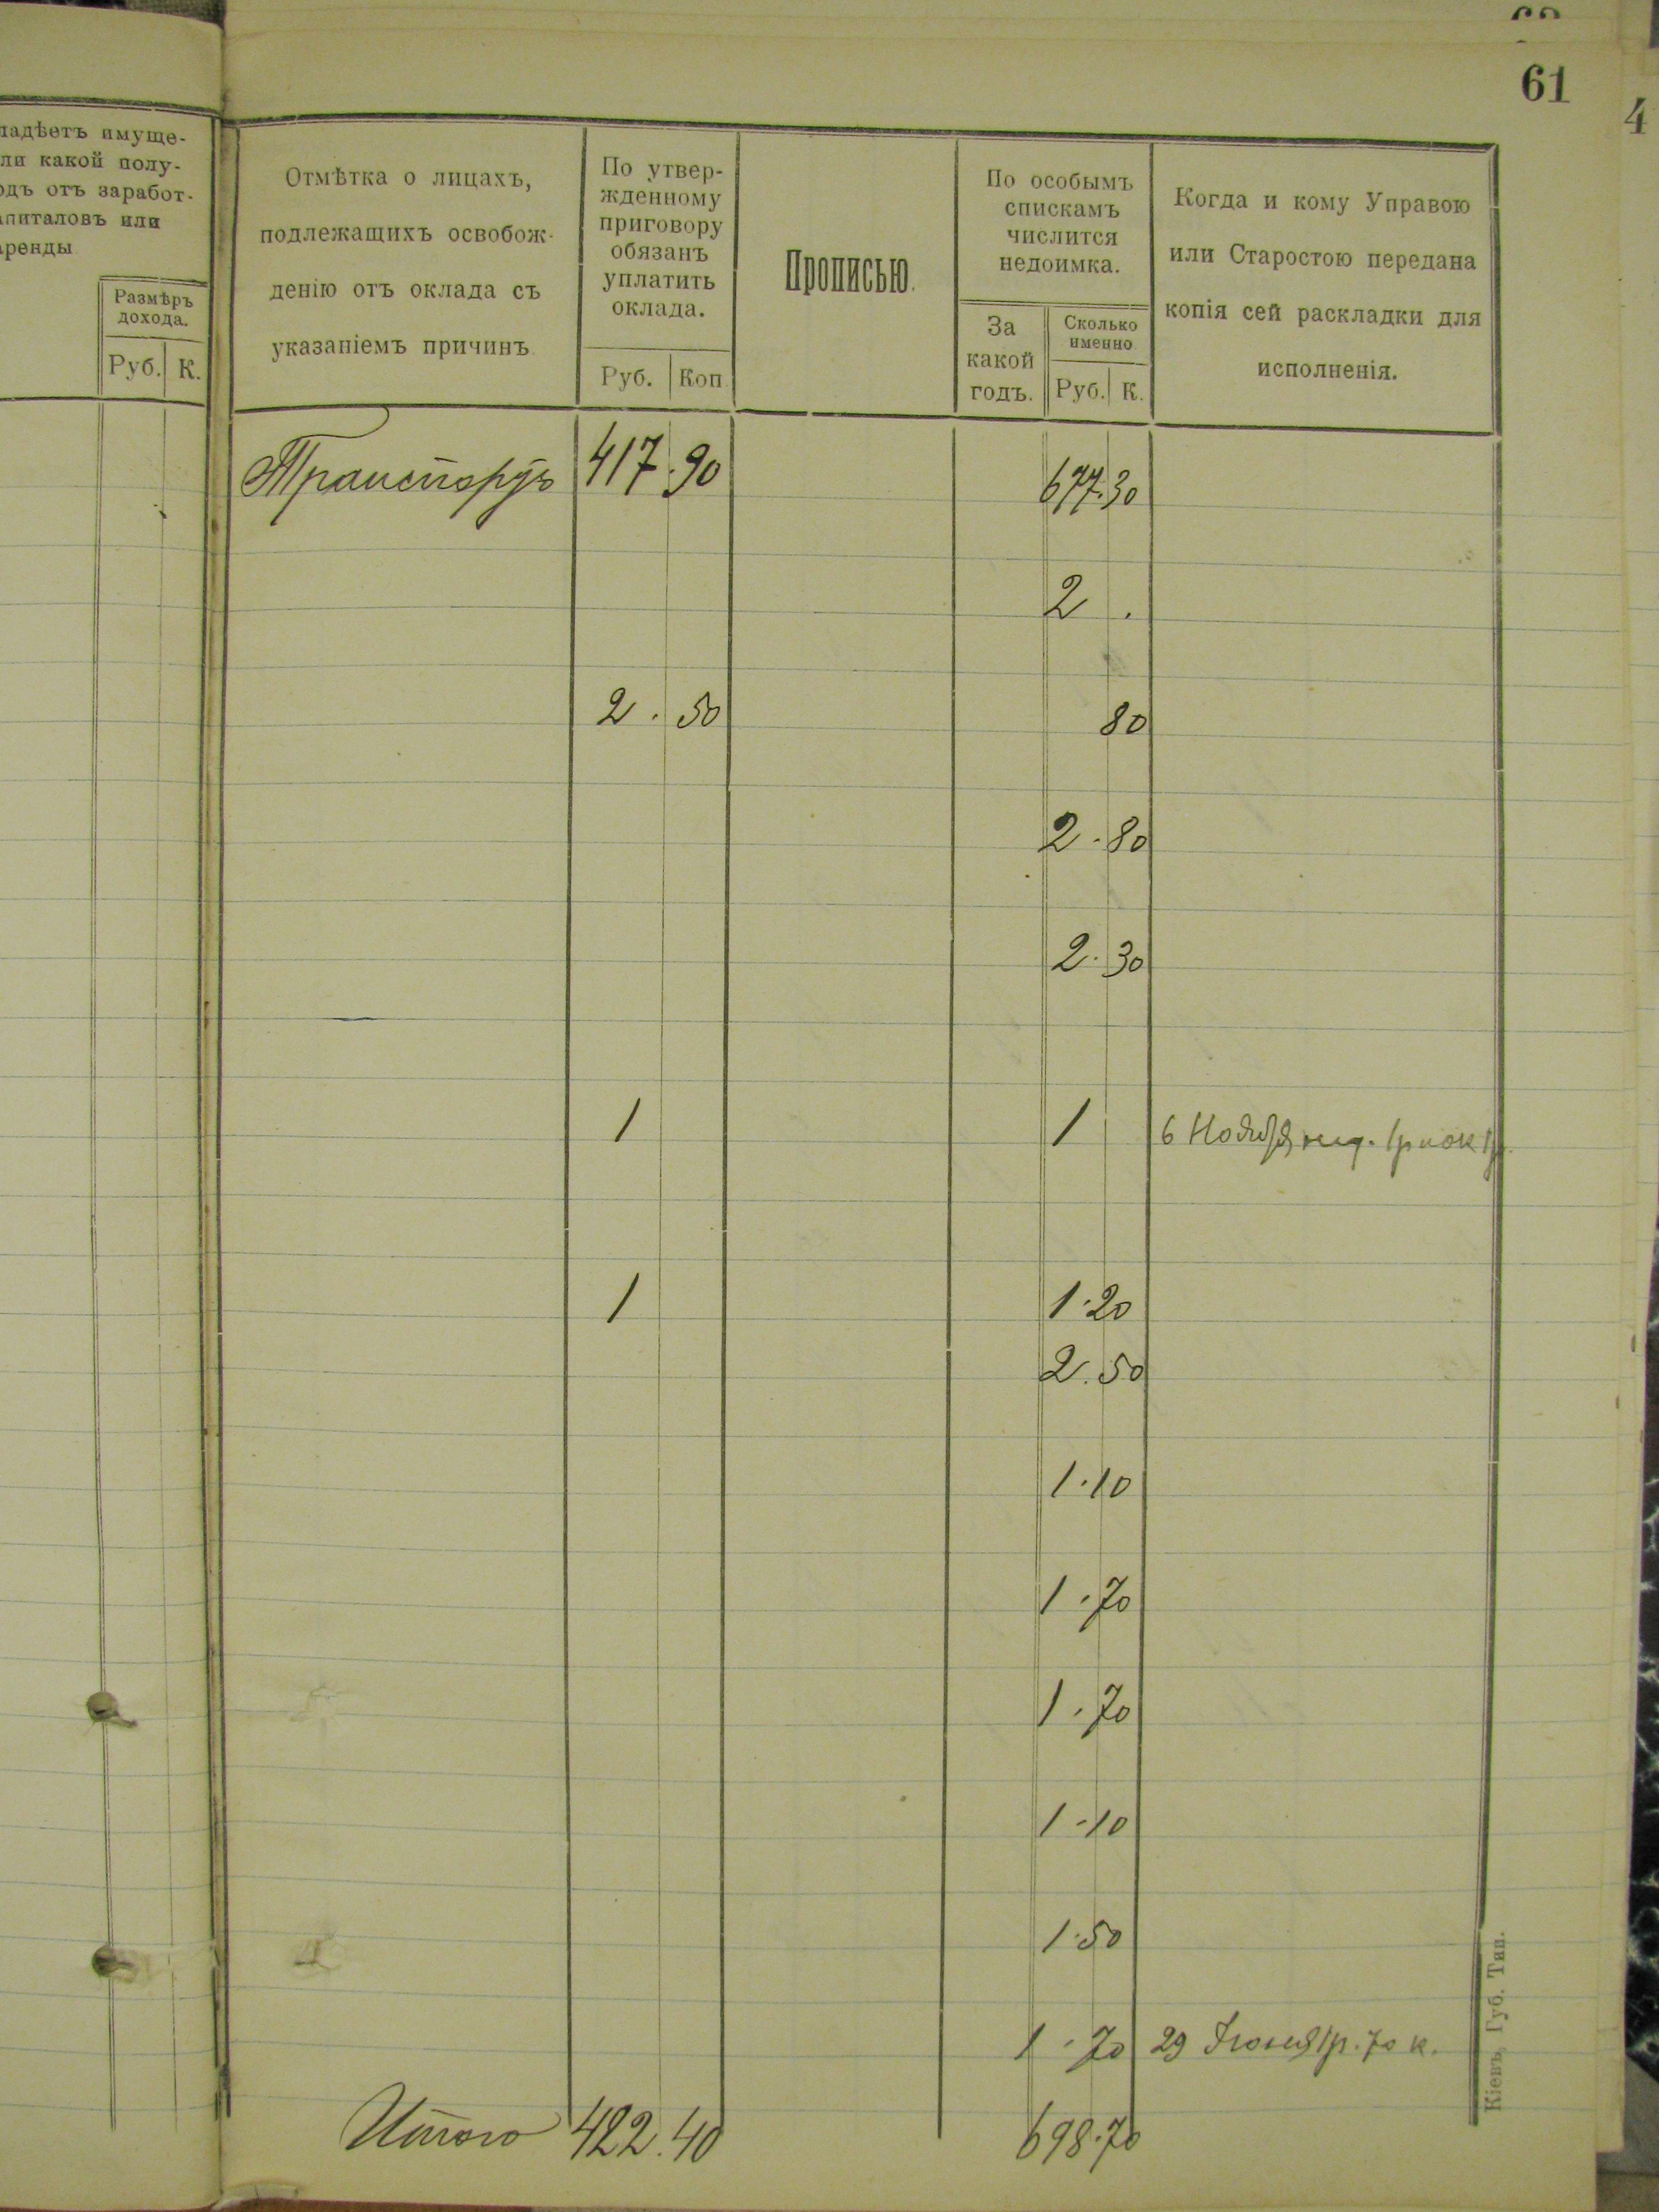 61
4
ладѣетъ имуще-
ли какой полу-
одъ отъ заработ-
апиталовъ или
аренды
Размѣръ
дохода.
Руб. К.
Отмѣтка о лицахъ,
подлежащихъ освобож-
денію отъ оклада съ
указаніемъ причинъ
По утвер-
жденному
приговору
обязанъ
уплатить
оклада.
Руб. Коп
Прописью.
По особымъ
спискамъ
числится
недоимка.
За
какой
годъ.
Сколько
именно
Руб. К.
Когда и кому Управою
или Старостою передана
копія сей раскладки для
исполненія.
Транспортъ 417.90 677.30
2 .
2.50 80
2.80
2.30
1 1 6 Ноября
1 1.20
2.50
1.10
1.70
1.70
1.10
1.50
1.70 29 Іюня 1р. 70 к.
Итого 422.40 698.70
Кіевъ, Губ. Тип.